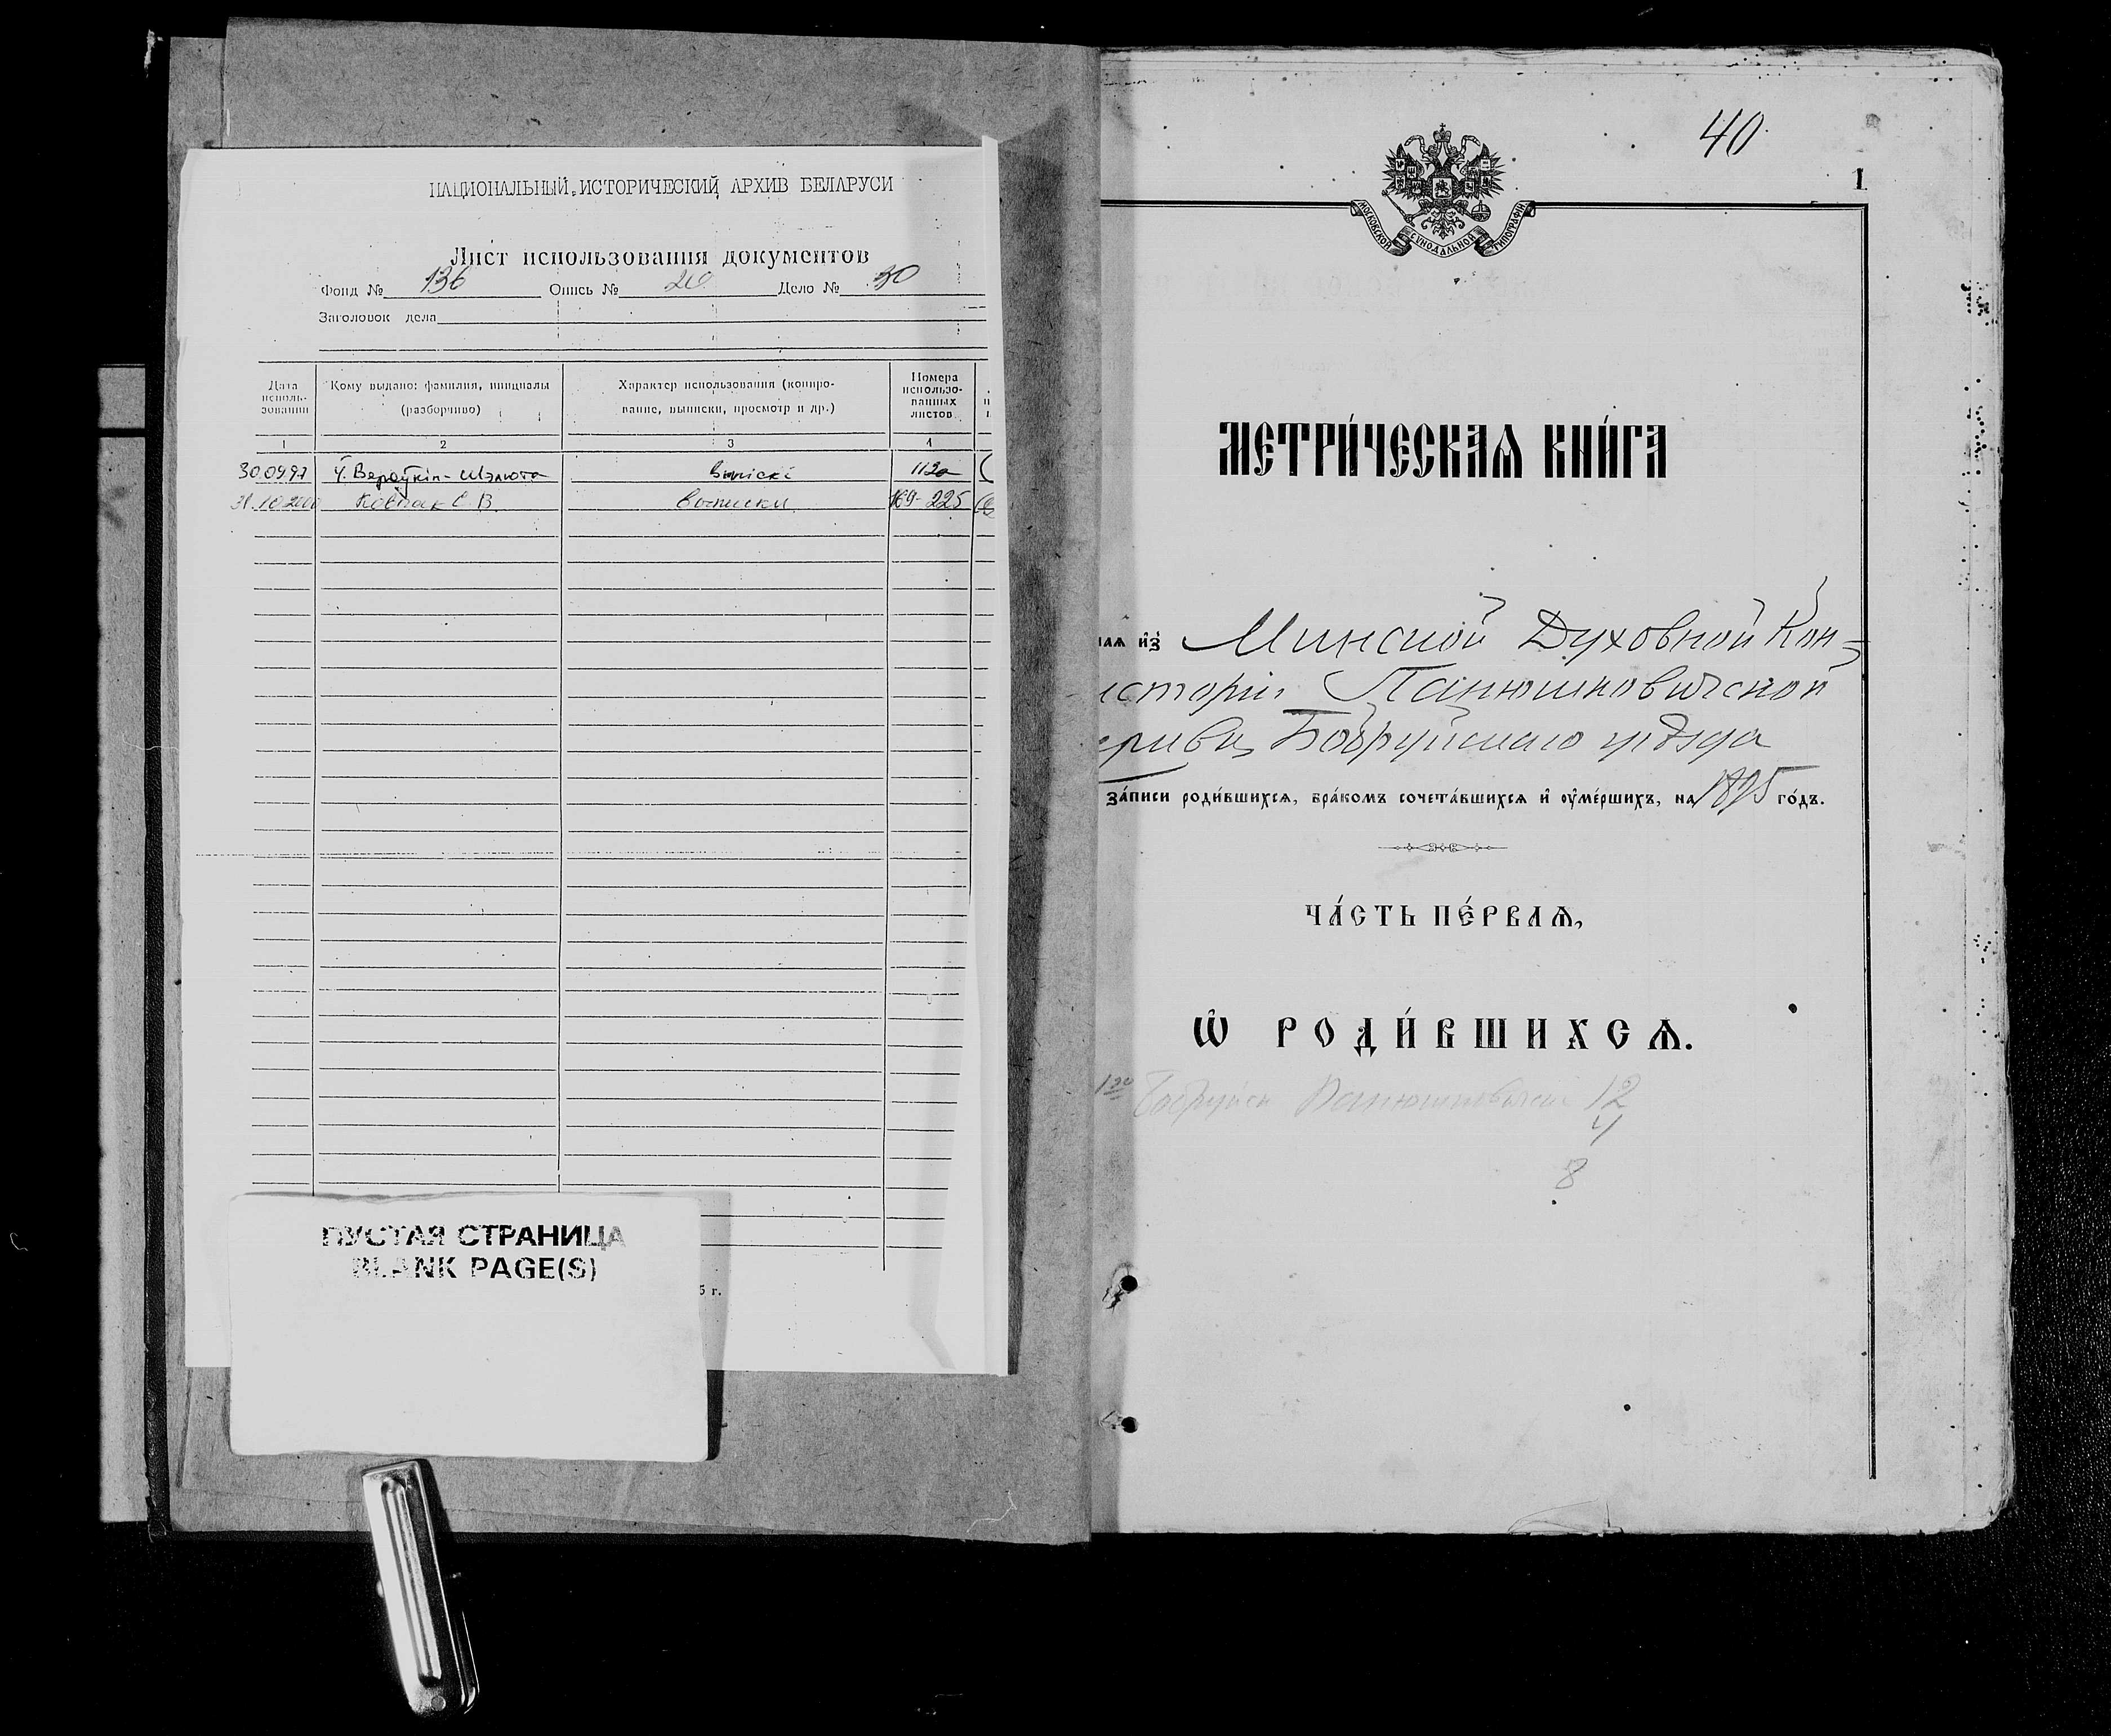 НАЦИОНАЛЬНЫЙ ИСТОРИЧЕСКИЙ АРХИВ БЕЛАРУСИ
Лист использования документов
Фонд № 136 Опись № Дело №
Заголовок дела
Дата исполь-зования
Кому выдано: фамилия, инициалы (разборчиво)
Характер использования (копиро-вание, выписки, просмотр и др.)
Номера использо-ванных листов
1 2 3 4
30.09.97 У. Вераўкін-Шэлюта выпіскі
31.10.2000 С.В. выписки 169-225
5 г.
ПУСТАЯ СТРАНИЦА
BLANK PAGE(S)
40
1
МОСКОВСКОЙ СѴНОДАЛЬНОЙ ТИПОГРАФІИ
МЕТРИ́ЧЕСКАѦ КНИ́ГА
наѧ и҆з̾ Минской Духовной Кон-
исторіи Панюшковичской
еркви, Бобруйскаго уѣзда
за́писи роди́вшихсѧ, бра́комъ сочета́вшихсѧ и҆ ѹ҆ме́ршихъ, на 1895 го́дъ.
ЧА́СТЬ ПЕ́РВАѦ,
Ѡ҆ РОДИ́ВШИХСѦ.
12
4
8